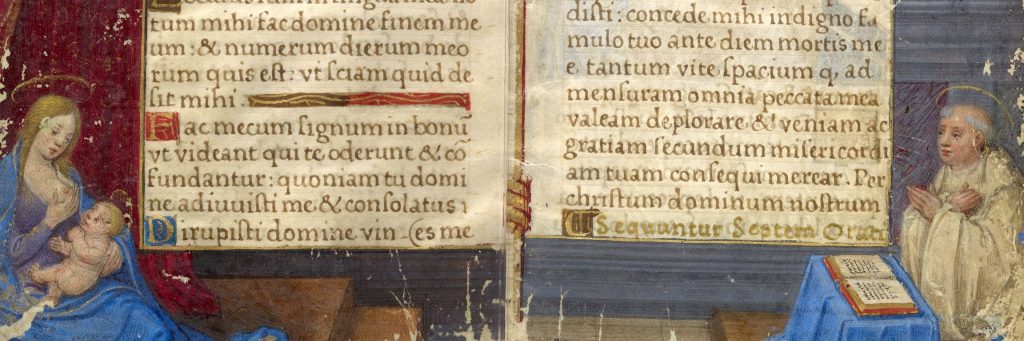 tum mihi fac domine finem me
um: & numerum dierum meo
rum quis est: vt sciam quid de
sit mihi
Fac mecum signum in bonū
vt videant qui te oderunt & cō
fundantur: quoniam tu domi
ne adiuvisti me & consolatus
Dirupisti domine vin (es me
disti: concede mihi indigno fa
mulo tuo ante diem mortis me
e, tantum vite spacium q, ad
mensuram omnia peccata mea
valeam deplorare & veniam ac
gratiam secundum misericordi
am tuam consequi merear. Per
christum dominum nostrum
Sequuntur Septem Orati